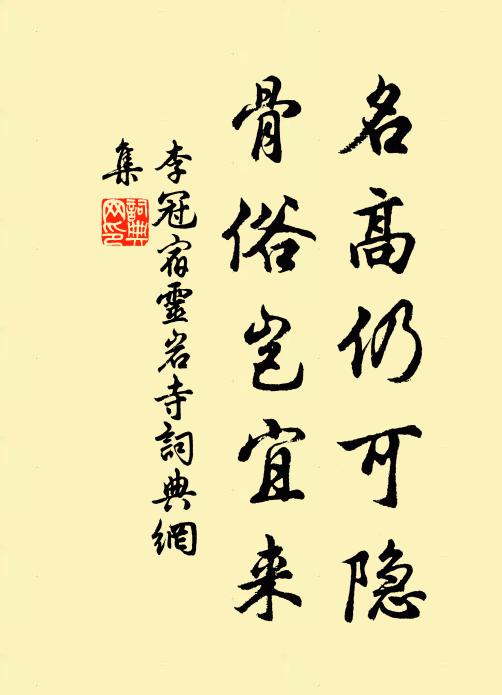 名高仍可隐
骨俗岂宜来
李冠宿靈岩寺詞典網
集
詞典
网印